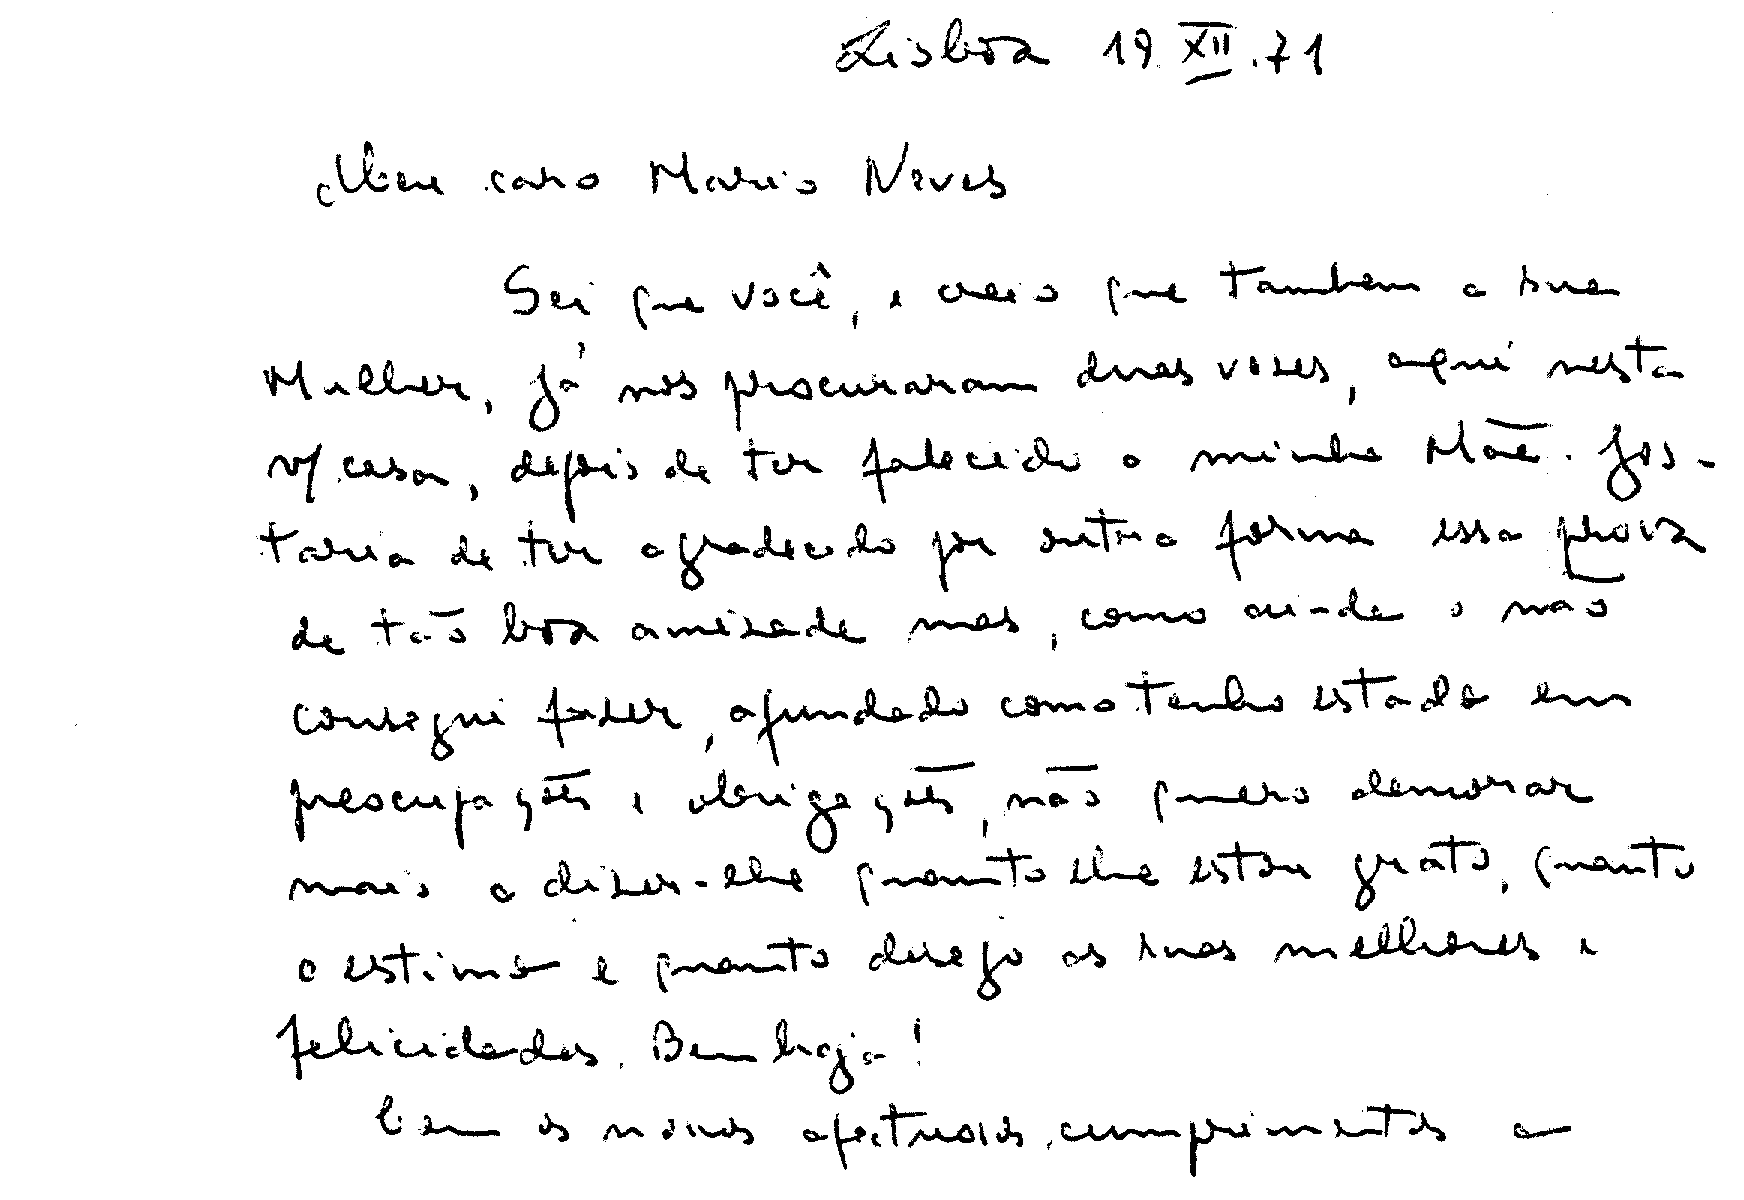 Lisboa 19 XII.71
Meu caro Mario Neves
Sei que você, e creio que tambem a sua
Mulher, já nos procuraram duas vezes, aqui nesta
v/ casa, depois de ter falecido a minha Mãe. Gos-
taria de ter agradecido por outra forma essa prova
de tão boa amizade mas, como ainda o não
consegui fazer, afundado como tenho estado em
preocupações e obrigações, não quero demorar
mais a dizer-lhe quanto lhe estou grato, quanto
o estimo e quanto desejo as suas melhores e
felicidades. Bem haja!
Com os nossos afectuosos cumprimentos a